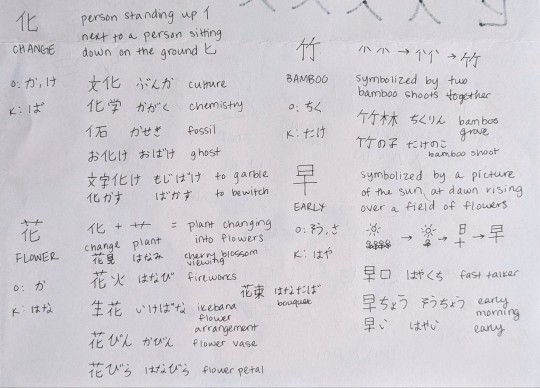 化
CHANGE
person standing up 亻
next to a person sitting
down on the ground ヒ
o: か, け
k: ば
文化 ぶんか culture
化学 かがく chemistry
化石 かせき fossil
お化け おばけ ghost
文字化け もじばけ to garble
化かす ばかす to bewitch
花
FLOWER
化 + 艹 = plant changing
change plant into flowers
o: か
k: はな
花見 はなみ cherry blossom
viewing
花火 はなび fireworks
花束 はなたば
bouquet
生花 いけばな ikebana
flower
arrangement
花びん かびん flower vase
花びら はなびら flower petal
竹
BAMBOO
→ → 竹
symbolized by two
bamboo shoots together
o: ちく
k: たけ
竹林 ちくりん bamboo
grove
竹の子 たけのこ
bamboo shoot
早
EARLY
symbolized by a picture
of the sun at dawn rising
over a field of flowers
o: そう, さ
k: はや
→ → → 早
早口 はやくち fast talker
早ちょう そうちょう early
morning
早い はやい early